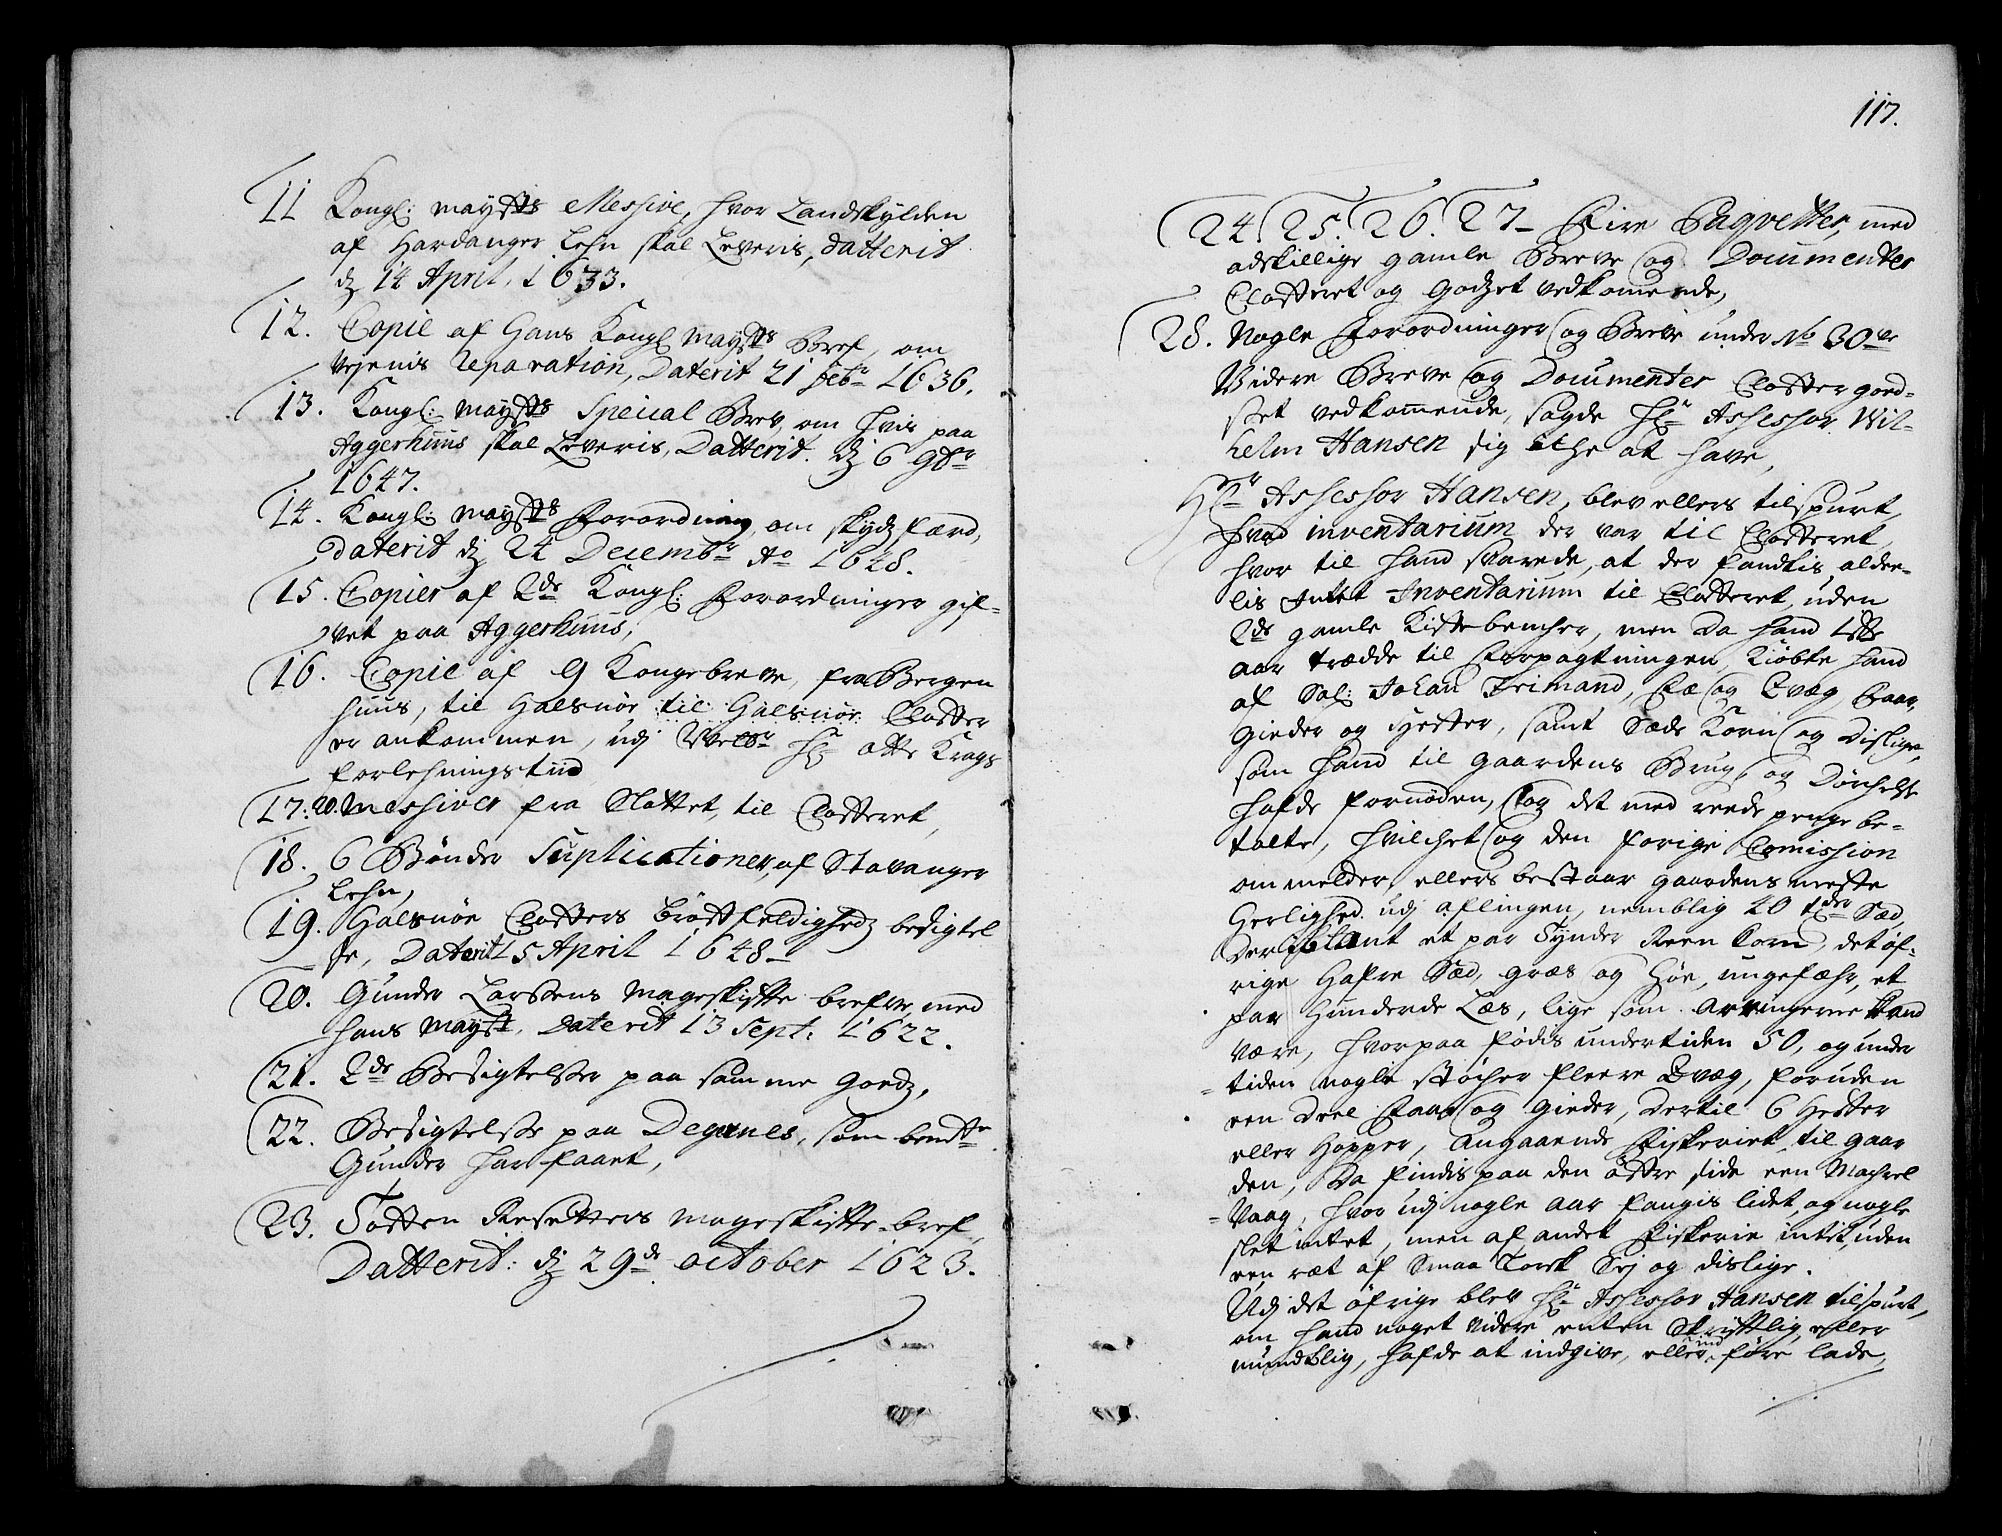 11 Kongl: mayst:s Messive, hvor Landskylden
af Hardanger Lehn skal Leveris, datterit
dj 14 April, 1633.
12. Copie af Hans Kongl mayst:s Bref, om
Vejenis Reparation, Daterit 21 febr 1636.
13. Kongl: mayst:s Special Brev, om hvis paa
Aggerhuus skal Leveris, Datterit. dj 6 9br
1647.
14. Kongl: mayst:s Forordning, om skydsfærd,
daterit dj 24 Decembr Ao 1648.
15. Copier af 2de Kongl: Forordninger gif-
vet paa Aggerhuus,
16. Copie af 9 Kongebreve, fra Bergen
huus, til Halsnøe til Halsnøe Closter
er ankommen, udj Welbr Hr Otte Krags
forlehningstiid
17: 20. Messiver fra Slottet, til Closteret,
18. 6 Bønder Suplicationer, af Stavanger
Lehn,
19. Halsnøe Closters brøstfeldighedz besigtel
se, Daterit 15 April 1648-
20. Gunder Larssens mageskifte brefve med
hans mayst, Daterit 13 Sept: 1622.
21. 2de Besigtelser paa samme Goedz,
22. Besigtelse paa Degnnes, som bendte
Gunder har faaet,
23. Tosten Resetters mageskifte-bref,
Datterit: dj 29de october 1623.
117.
24. 25. 26. 27- Fire Paqvetter, med
adskillige gamle Breve og Documenter
Closteret og Godzet vedkommende,
28. Nogle Forordninger og Breve under No 30ve
Videre Breve og Documenter Clostergoed-
set vedkommende, sagde Hr Assessor Wil-
helm Hansen sig iche at have,
Hr Assessor Hansen, blev ellers tilspurt
hvad inventarium der var til Closteret,
hvor til hand svarede, at der fandtis alde-
lis Intet Inventarium til Closteret, uden
2de gamle Kistebencher, men da hand 1ste
aar trædde til Forpagtningen, Kiøbte hand
af Sal: Johan Frimand, Fæ og Qvæg, Faar,
Gieder og Hester, samt Sæde Korn og dislige,
som hand til gaardens Brug og Dørchelse
hafde fornøden, og det med reede penge be-
talte, hvilchet og den forige Comission
ommelder, ellers bestaar gaardens meste
Herlighed udj aflingen, nemblig 40 tdr Sæd,
deriblant et par Tynder Reen Korn, det øf-
rige Hafre Sæd, græs og Høe, ungefæhr, et
par Hunderde Læs, lige som Aaringerne kand
være, hvorpaa fødis undertiden 50, og under
tiden nogle støcher fleere Qvæg, foruden
een deel Faar og Gieder, dertil 6 Hester
eller Hopper, Angaaende Fiskeriet til gaar
den, da findis paa den østre side een Machrel
Vaag, hvor udj nogle aar fangis lidet, og nogle
slet intet, men af andet Fiskerie intet, uden
een ræt af Smaa Torsk Sej og dislige.
Udj det øfrige blev Hr Assessor Hansen tilspurt,
om hand noget videre enten Skriftlig, eller
mundtlig, hafde at indgive, eller føre lade,